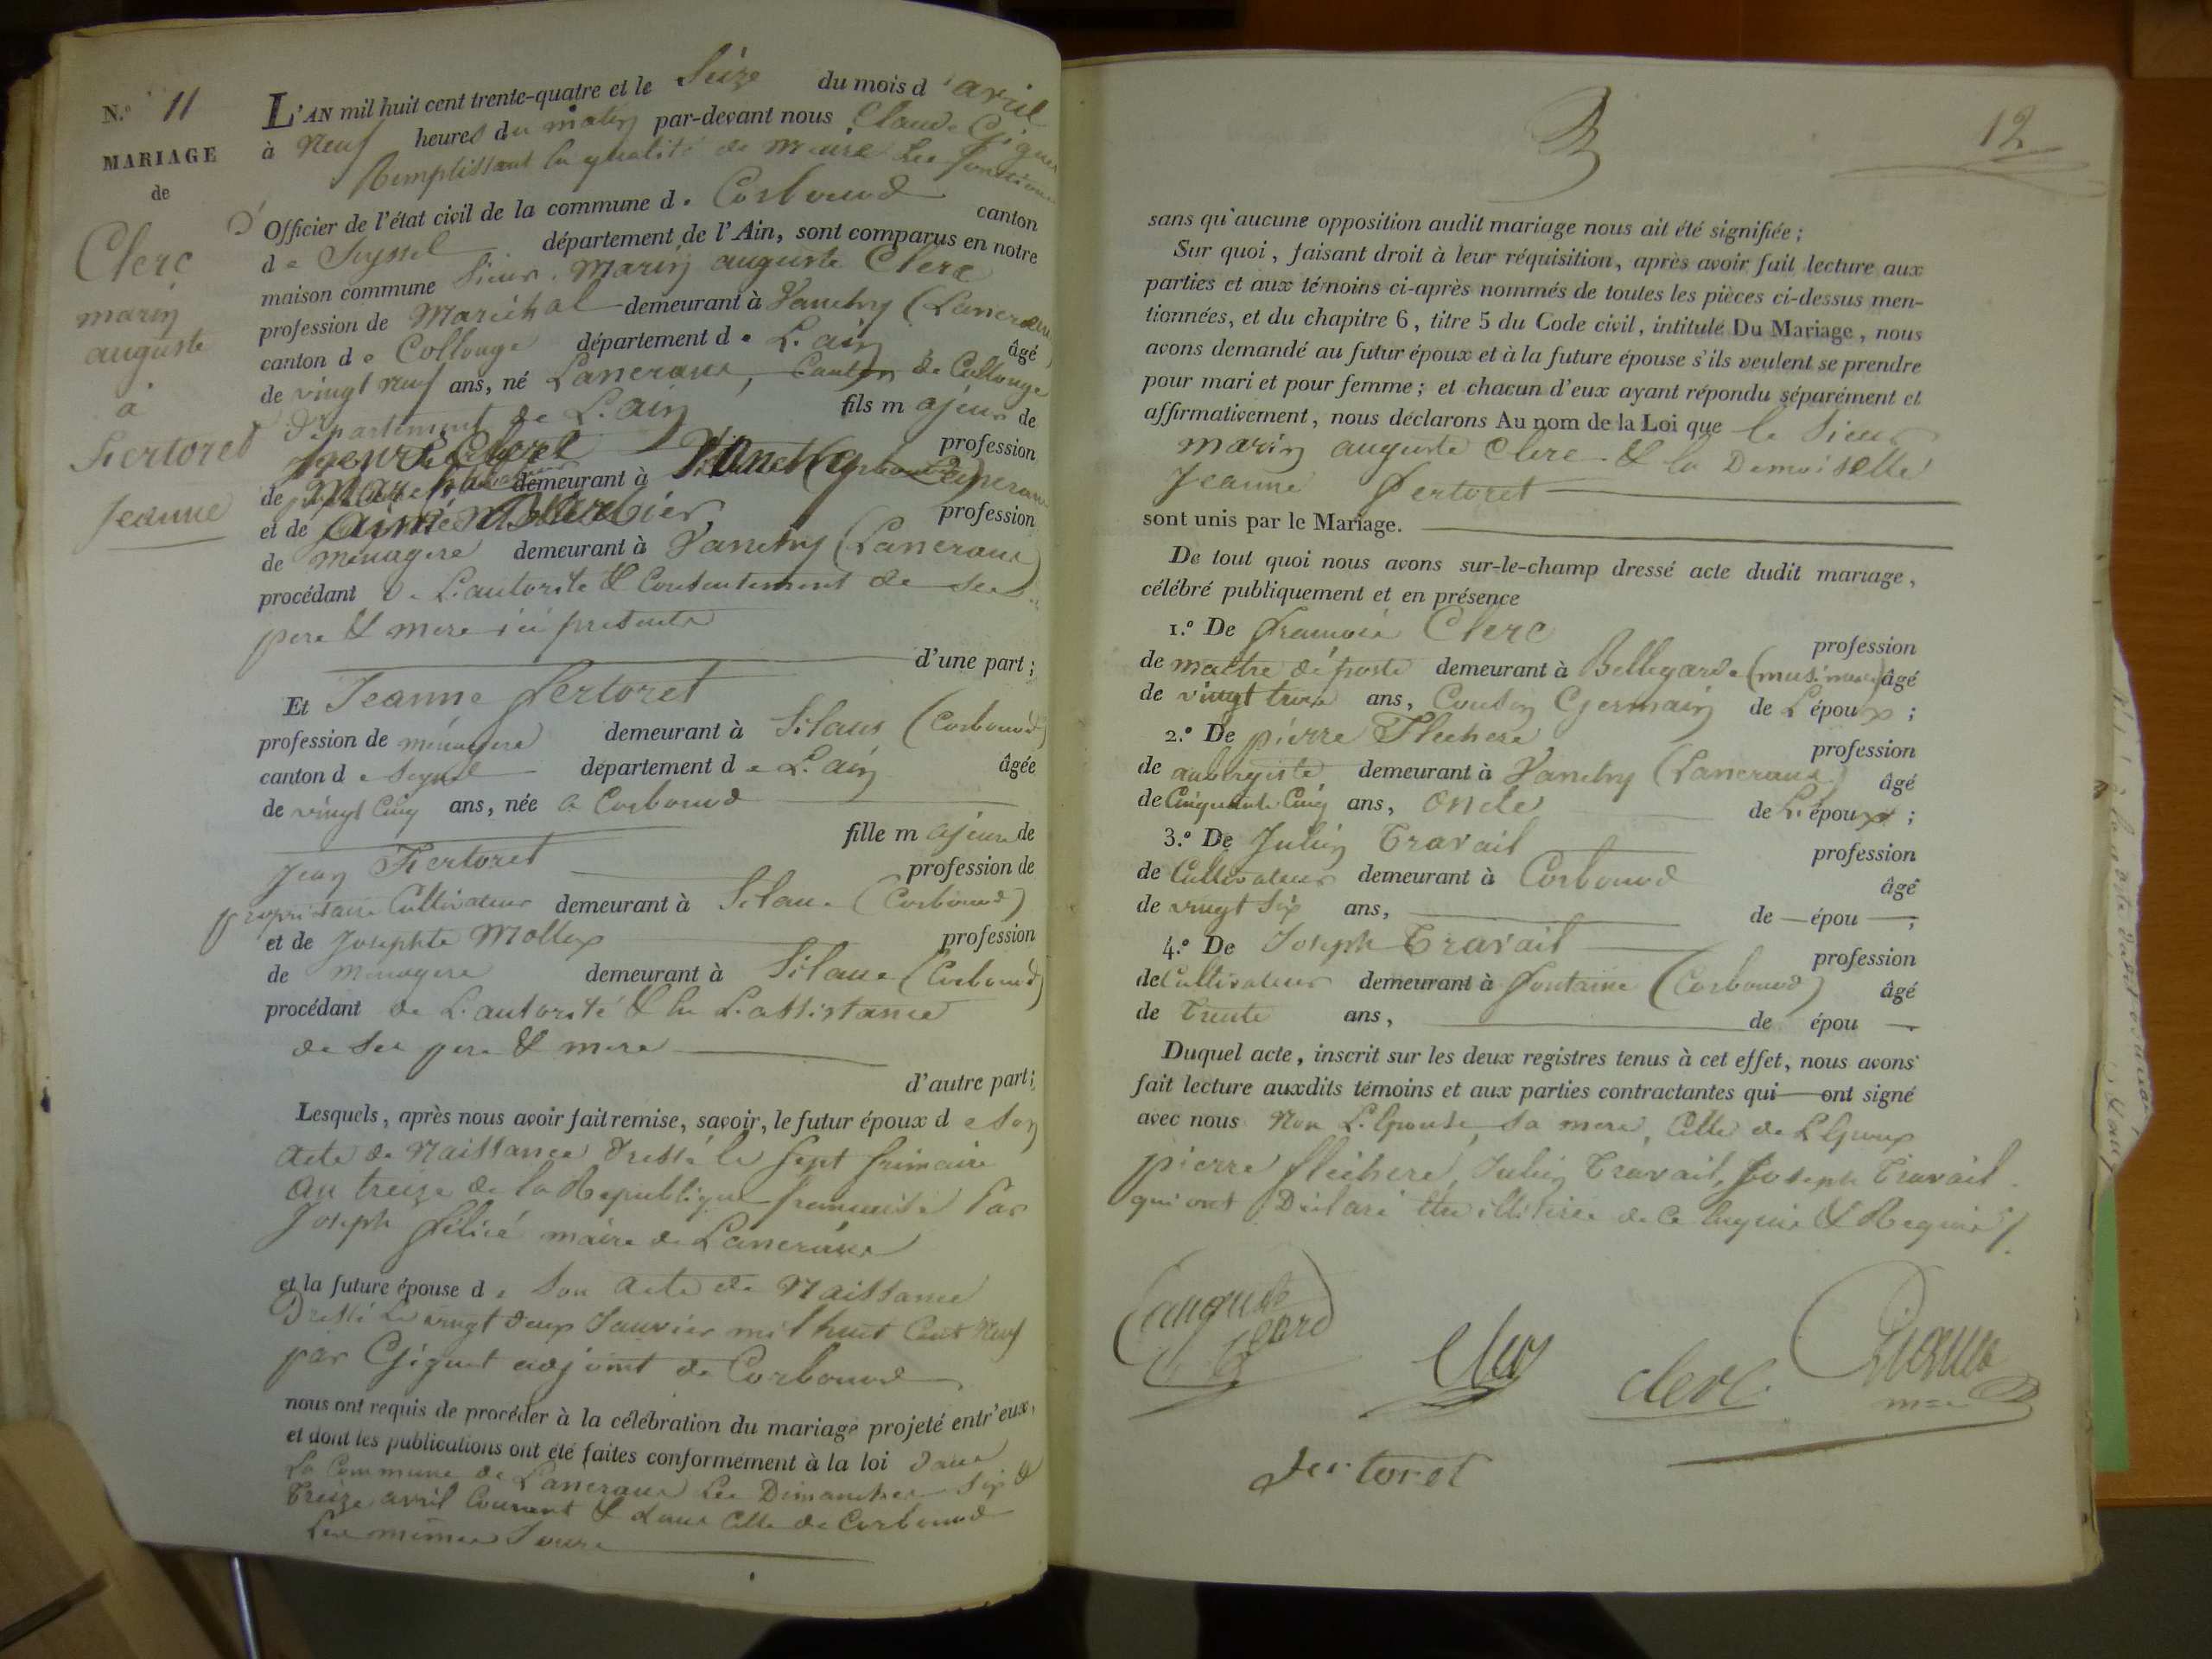 N.º 11
MARIAGE
de
Clerc
marin
auguste
a
Fertoret
Jeanne
L'AN mil huit cent trente-quatre et le Seize du mois d'avril
à Neuf heures du matin par-devant nous Claude Giguet
Remplissant la qualité de Maire Les fonctions
d' Officier de l'état civil de la commune de Corbonod canton
de Seyssel département de l'Ain, sont comparus en notre
maison commune Sieur Marin auguste Clerc
profession de Maréchal demeurant à Vanchy (Lancrans)
canton de Collonge département de L'ain âgé
de vingt neuf ans, né Lancrans, Canton de Collonge
Département de L'ain fils majeur de
profession
de demeurant à Vanchy
et de profession
de menagere demeurant à Vanchy (Lancrans)
procédant de L'autorité & Consentement de ses
pere & mere ici presents
d'une part;
Et Jeanne Fertoret
profession de ménagere demeurant à Silans (Corbonod)
canton de Seyssel département de L'ain âgée
de vingt Cinq ans, née a Corbonod
fille majeure de
Jean Fertoret profession de
propriétaire Cultivateur demeurant à Silans (Corbonod)
et de Josephte Mollex profession
de Menagere demeurant à Silans (Corbonod)
procédant de L'autorité & de L'assistance
de ses pere & mere
d'autre part;
Lesquels, après nous avoir fait remise, savoir, le futur époux de son
acte de Naissance Dressé le sept frimaire
an treize de la Republique francaise Par
Joseph félicé maire de Lancrans
et la future épouse de Son acte de Naissance
Dressé Le vingt deux Janvier mil huit Cent Neuf
par Giguet adjoint de Corbonod
nous ont requis de procéder à la célébration du mariage projeté entr'eux,
et dont les publications ont été faites conformément à la loi dans
La Commune de Lancrans Les Dimanches Six &
treize avril Courant & dans Celle de Corbonod
Les mêmes Jours
12
sans qu'aucune opposition audit mariage nous ait été signifiée;
Sur quoi, faisant droit à leur réquisition, après avoir fait lecture aux
parties et aux témoins ci-après nommés de toutes les pièces ci-dessus men-
tionnées, et du chapitre 6, titre 5 du Code civil, intitulé Du Mariage, nous
avons demandé au futur époux et à la future épouse s'ils veulent se prendre
pour mari et pour femme; et chacun d'eux ayant répondu séparément et
affirmativement, nous déclarons Au nom de la Loi que le Sieur
marin auguste Clerc & la Demoiselle
Jeanne Fertoret
sont unis par le Mariage.
De tout quoi nous avons sur-le-champ dressé acte dudit mariage,
célébré publiquement et en présence
1.º De francois Clerc profession
de maitre de poste demeurant à Bellegarde (musinens) âgé
de vingt trois ans, Cousin Germain de L'époux;
2.º De pierre Flechere profession
de aubergiste demeurant à Vanchy (Lancrans) âgé
de Cinquante Cinq ans, oncle de L'époux;
3.º De Julien Travail profession
de Cultivateur demeurant à Corbonod âgé
de vingt six ans, de épou ;
4.º De Joseph Travail profession
de Cultivateur demeurant à fontaine (Corbonod) âgé
de Trente ans, de épou
Duquel acte, inscrit sur les deux registres tenus à cet effet, nous avons
fait lecture auxdits témoins et aux parties contractantes qui ont signé
avec nous Non L'Epouse, Sa mere, Celle de L'Epoux
pierre flechere, Julien Travail, Joseph Travail
qui ont Déclaré Etre illitérés de Ce Enquis & Requis
Clerc
clerc
fertoret